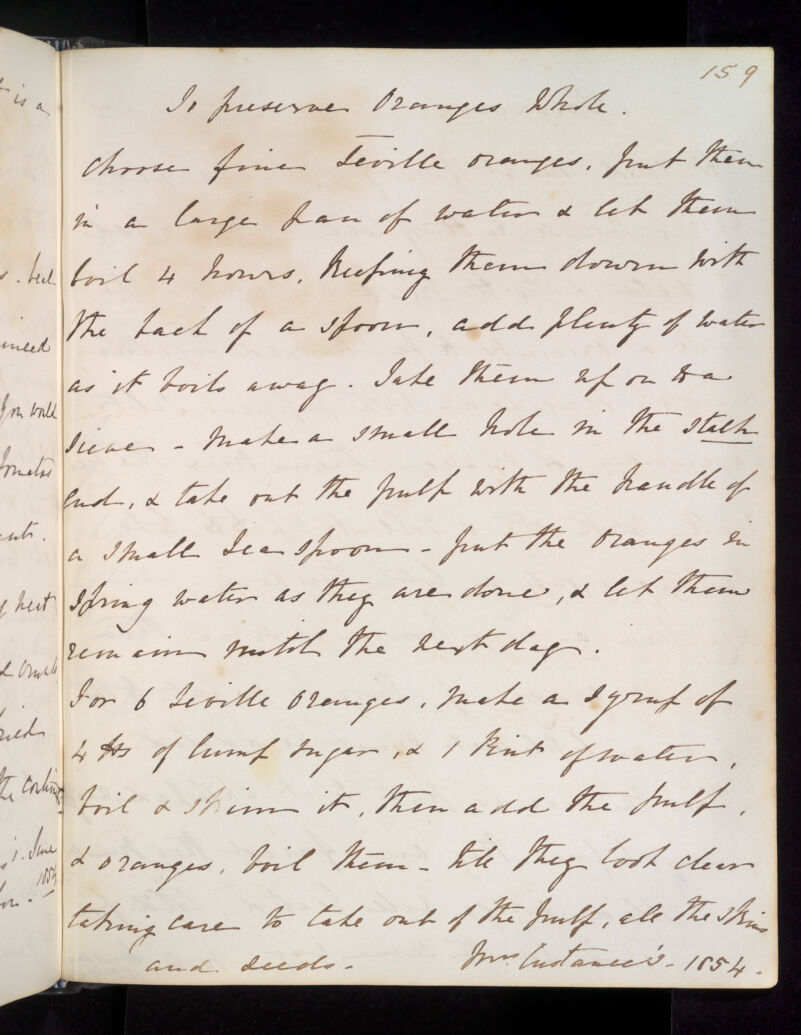 159
To preserve Oranges Whole.
Choose fine Seville oranges, put them
in a large pan of water & let them
boil 4 hours, keeping them down with
the back of a spoon, add plenty of water
as it boils away. Take them up on to a
sieve - make a small hole in the stalk
end, & take out the pulp with the handle of
a small Tea spoon - put the Oranges in
Spring water as they are done, & let them
remain until the next day.
For 6 Seville Oranges, make a Syrup of
4 lbs of lump sugar, & 1 Pint of water,
boil & skim it, then add the pulp,
& oranges, boil them - till they look clear
taking care to take out of the pulp, all the skins
and seeds - Mrs Custance's - 1854.
is a
you would
Tomatas
June
1854